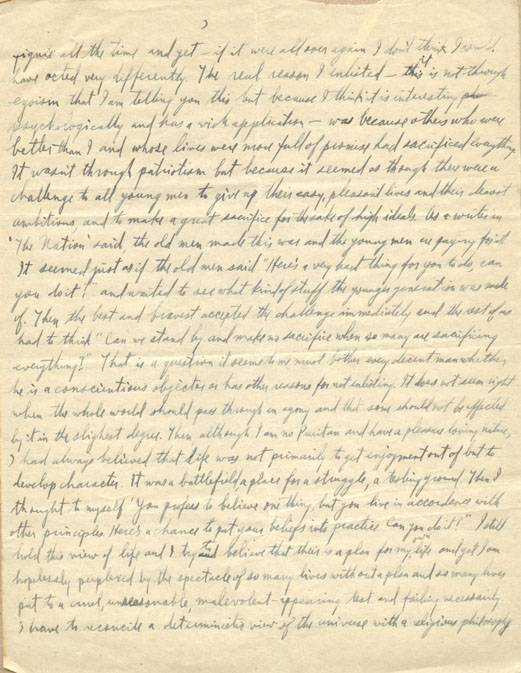 figure all the time and yet – if it were all over again I don't think I could
have acted very differently. The real reason I enlisted – this it is not through
egoism that I am telling you this but because I think it is interesting
psychologically and has a wide application – was because others who were
better than I and whose lives were more full of promise had sacrificed everything
It wasn't through patriotism but because it seemed as though there were a
challenge to all young men to give up their easy, pleasant lives and their dearest
ambitions, and to make a great sacrifice for the sake of high ideals. As a writer in
'The Nation' said, the old men made this war and the young men are paying for it.
It seemed just as if the old men said "Here's a very hard thing for you to do, can
you do it?" and waited to see what kind of stuff the younger generation was made
of. Then the best and bravest accepted the challenge immediately and the rest of us
had to think "Can we stand by and make no sacrifice when so many are sacrificing
everything?" That is a question it seems to me must bother every decent man whether
he is a conscientious objector or has other reasons for not enlisting. It does not seem right
when the whole world should pass through an agony and that some should not be affected
by it in the slighest degree. Then, although I am no Puritan and have a pleasure loving nature,
I had always believed that life was not primarily to get enjoyment out of but to
develop character. It was a battlefield, a place for a struggle, a testing ground. Then I
thought to myself 'You profess to believe one thing, but you live in accordance with
other principles. Here's a chance to put your beliefs into practice. Can you do it?" I still
hold this view of life and I try to believe that there is a plan for my own life and yet I am
hopelessly perplexed by the spectacle of so many lives without a plan and so many lives
put to a cruel, unreasonable, malevolent-appearing test and failing necessarily
I have to reconcile a deterministic view of the universe with a religious philosophy